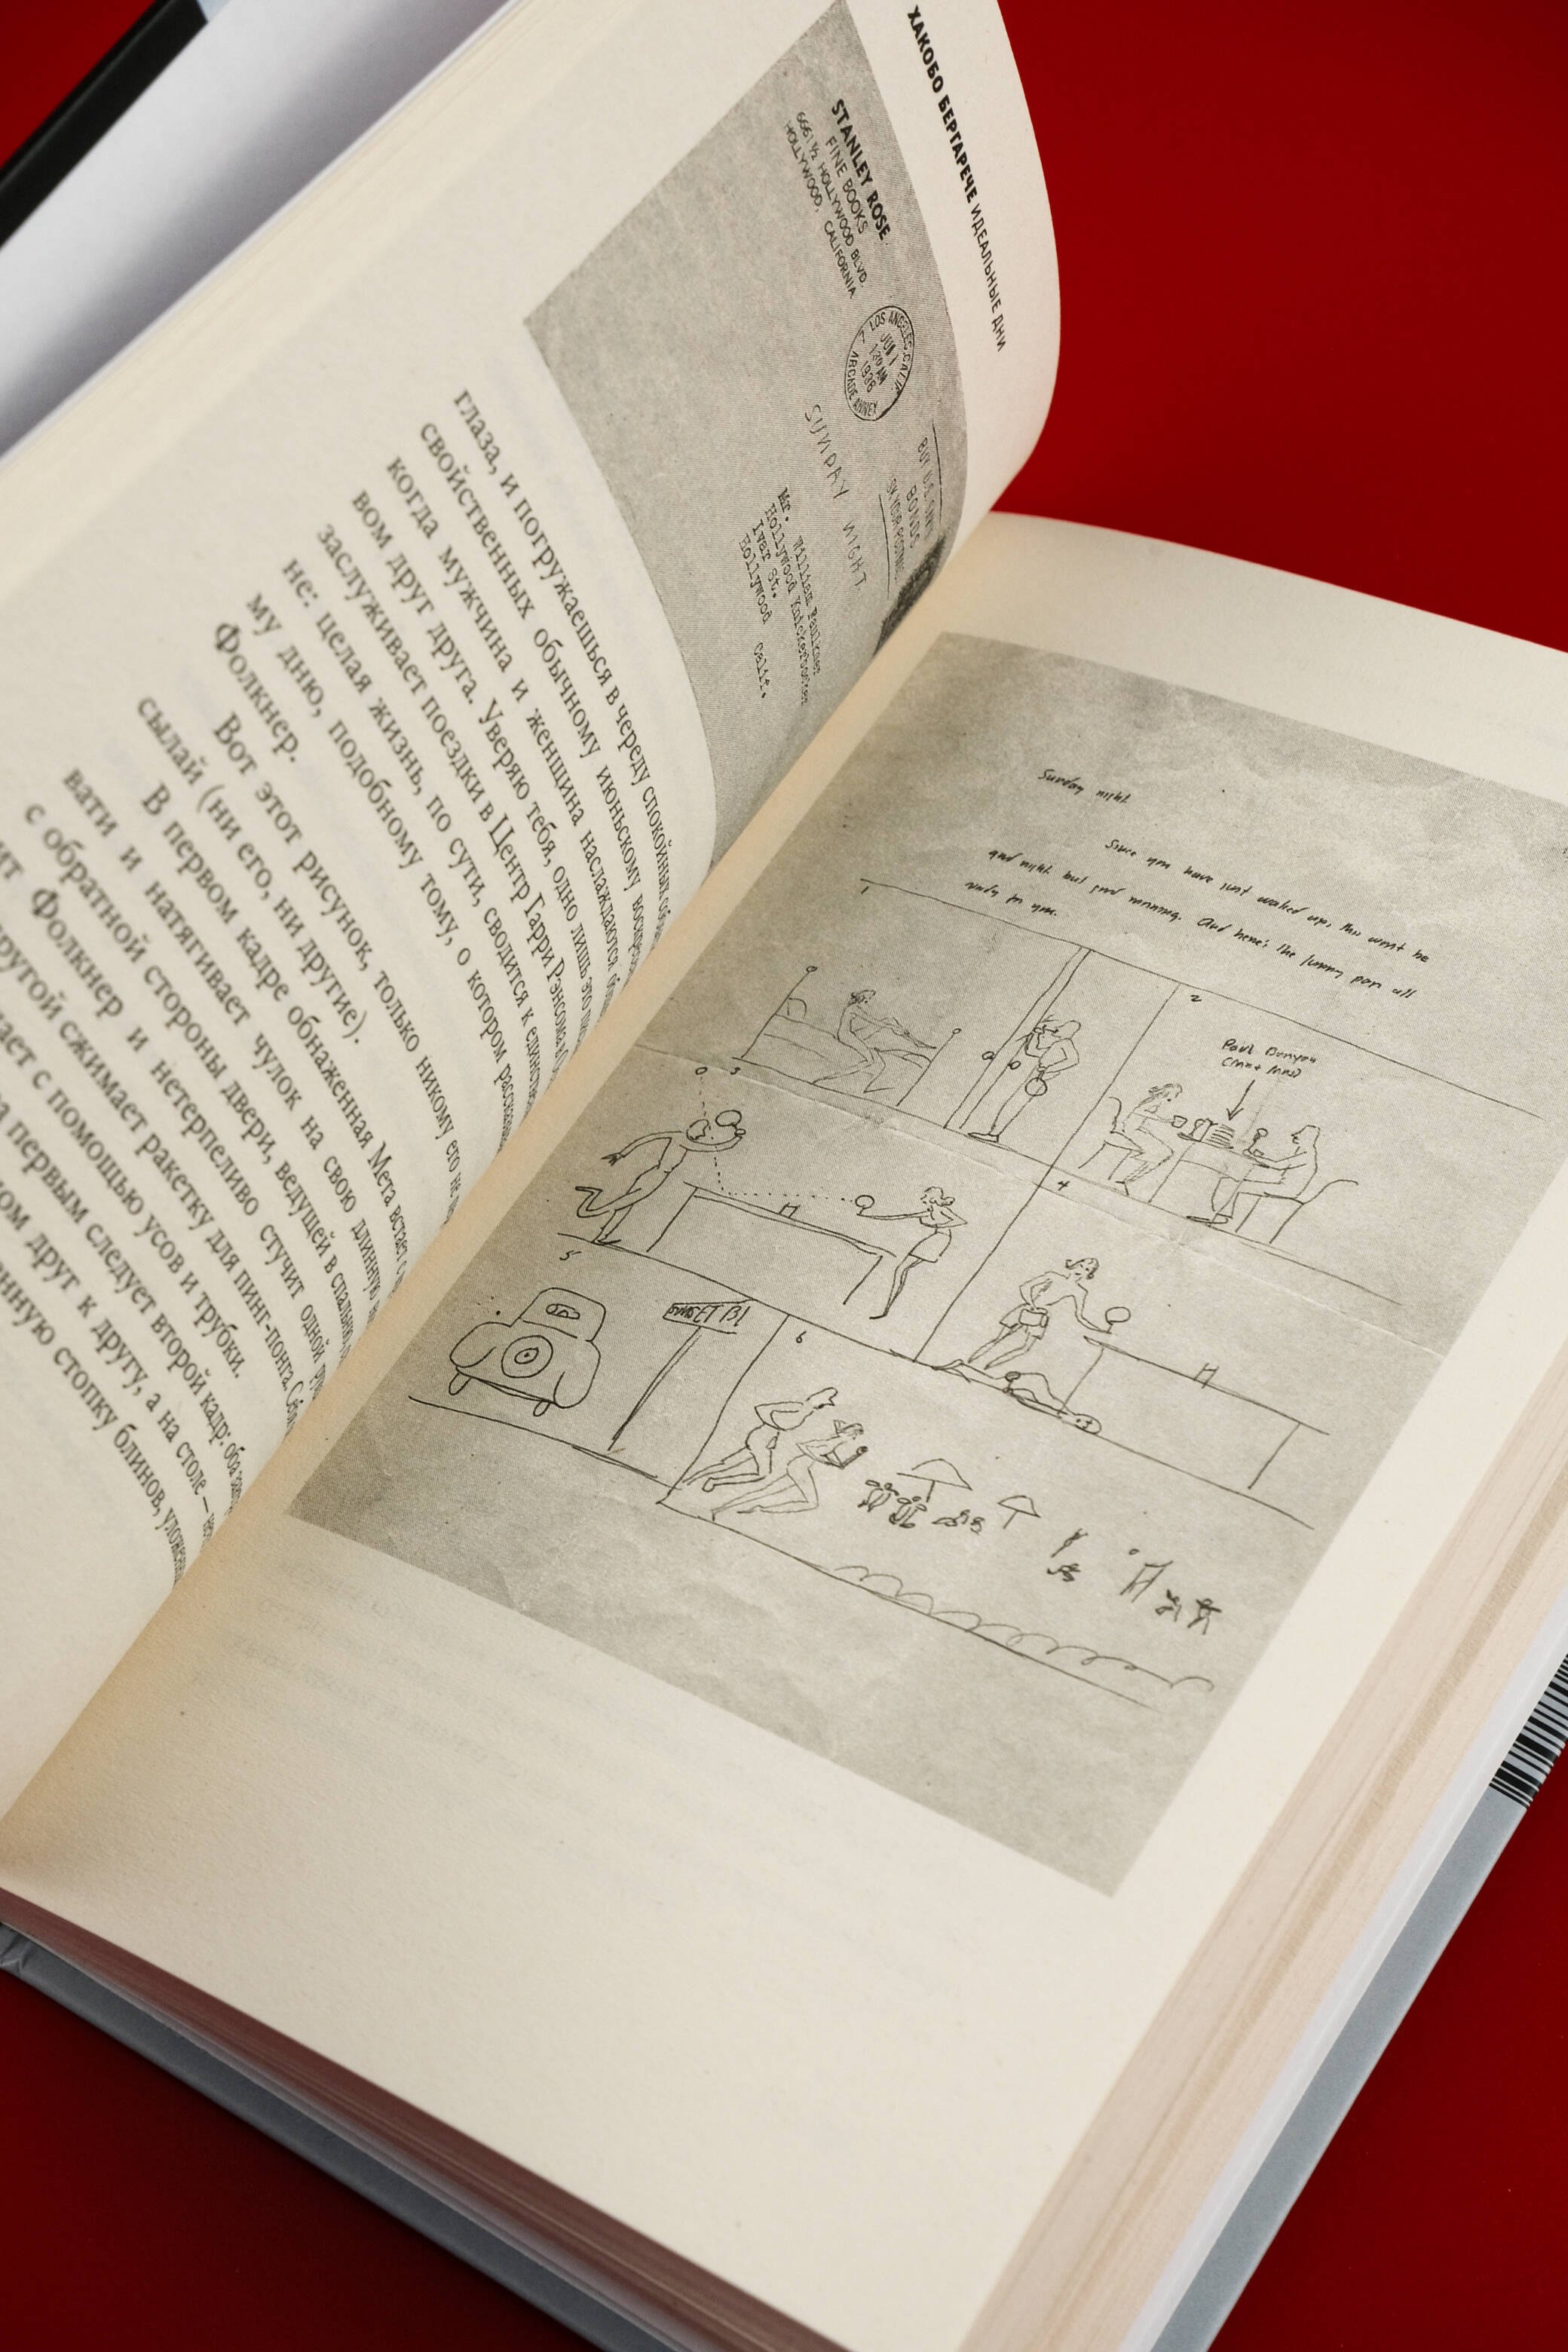 ХАКОБО БЕРГАРЕЧЕ ИДЕАЛЬНЫЕ ДНИ
STANLEY ROSE
FINE BOOKS
6661 ½ HOLLYWOOD BLVD.
HOLLYWOOD, CALIFORNIA
LOS ANGELES, CALIF.
JUN 1
1 30 AM
1936
ARCADE ANNEX
BUY U.S.
BONDS
SUNDAY NIGHT
Mr. William Faulkner
Hollywood Knickerbocker
Ivar St.
Hollywood Calif.
глаза, и погружаешься в череду спокойных
свойственных обычному июньскому
когда мужчина и женщина наслаждаются
вом друг друга. Уверяю тебя, одно лишь это
заслуживает поездки в Центр Гарри Рэнсома
не: целая жизнь, по сути, сводится к
му дню, подобному тому, о котором
Фолкнер.
Вот этот рисунок, только никому его не
сылай (ни его, ни другие).
В первом кадре обнаженная Мета встает с
вати и натягивает чулок на свою длинную
с обратной стороны двери, ведущей в
Фолкнер и нетерпеливо стучит одной
другой сжимает ракетку для пинг-понга
с помощью усов и трубки.
первым следует второй кадр: оба
друг к другу, а на столе —
стопку блинов,
Sunday night
Since you have just waked up, this wont be
good night but good morning. And here's the funny paper all
ready for you.
1
2
Paul Bunyan
3
4
5
SUNSET Bl
6